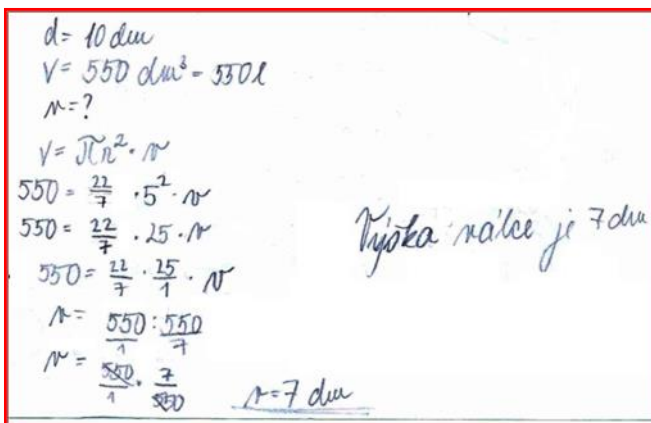 d = 10 dm
V = 550 dm³ = 550 l
v = ?
V = πr² · v
550 = 22/7 · 5² · v
550 = 22/7 · 25 · v
550 = 22/7 · 25/1 · v
v = 550/1 : 550/7
v = 550/1 · 7/550
v = 7 dm
Výška válce je 7 dm